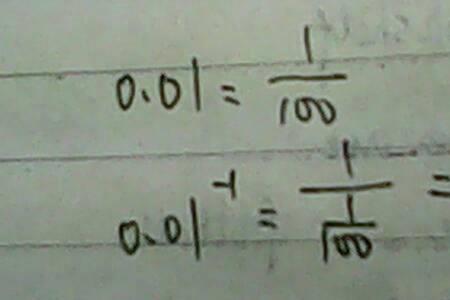 0.01 = 1/100
0.01⁻¹ = 1/(1/100) =